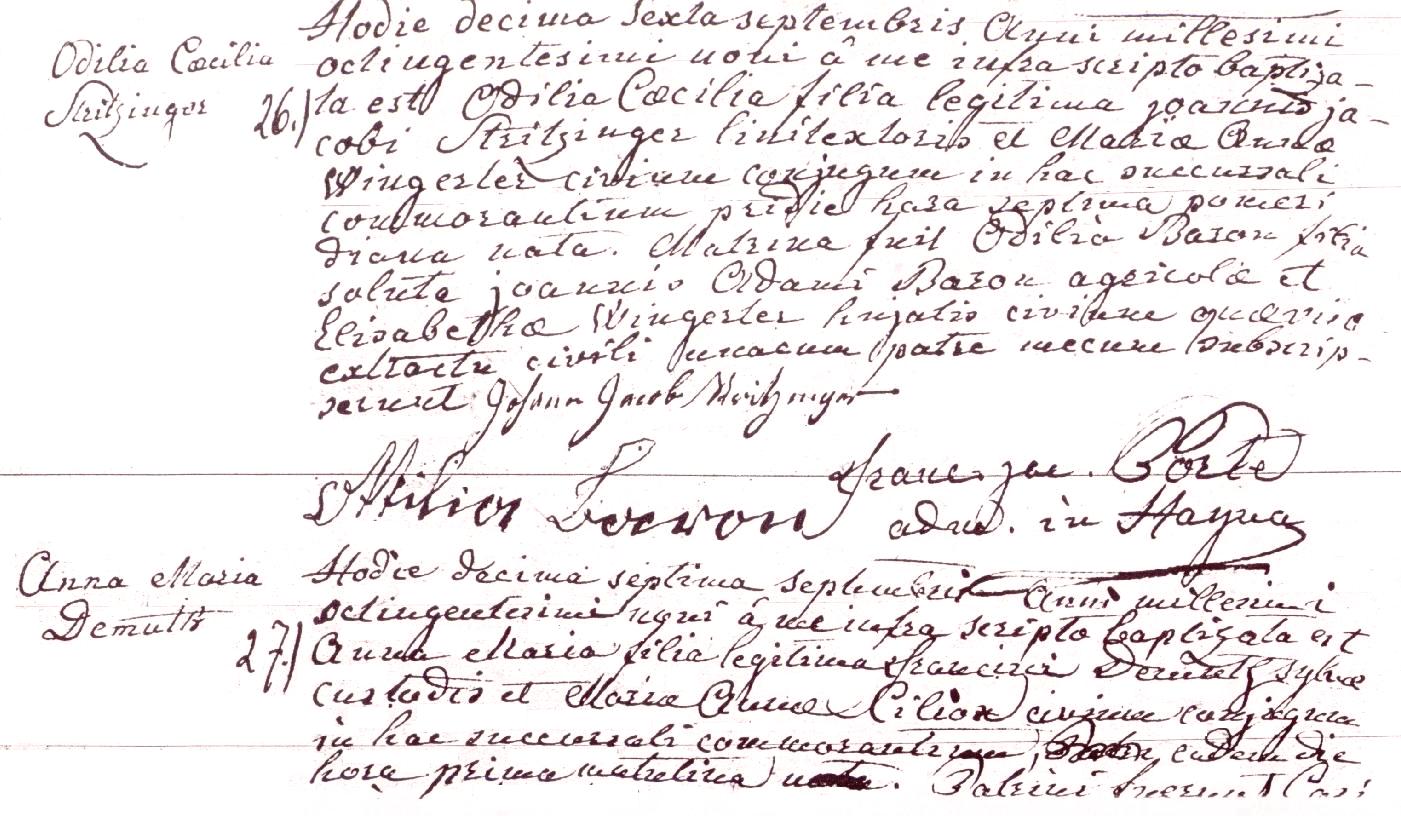 Odilia Cæcilia
Stritzinger
26.)
Hodie decima sexta septembris Anni millesimi
octingentesimi noni â me infra scripto baptiza-
ta est Odilia Cæcilia filia legitima joannis ja-
cobi Stritzinger linitextoris et Mariæ Annæ
Wingerter civium conjugum in hac succursali
commorantium pridie hora septima pomeri
diana nata. Matrina fuit Odilia Baron filia
soluta joannis Adami Baron agricolæ et
Elisabethæ Wingerter hujatis civium quæ viso
extractu civili unacum patre mecum subscrip-
serunt Johann Jacob Stritzinger
Ottilia Baron
franc. jac. Porte
adm. in Hayna
Anna Maria
Demuth
27.)
Hodie decima septima septembris Anni millesimi
octingentesimi noni â me infra scripto baptizata est
Anna Maria filia legitima francisci Demuth sylvæ
custodis et Mariæ Annæ Ciliox civium conjugum
in hac succursali commorantium, eadem die
hora prima matutina nata. Patrini fuerunt